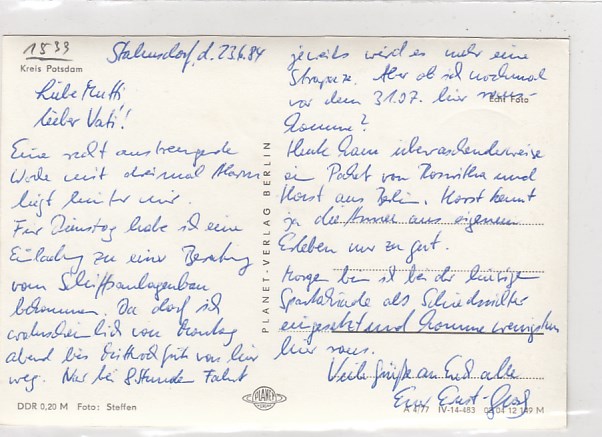 1533
Kreis Potsdam
Stahnsdorf, d. 23.6.84
Liebe Mutti
Lieber Vati!
Eine recht anstrengende
Woche mit dreimal Alarm
liegt hinter mir.
Für Dienstag habe ich eine
Einladung zu einer Beratung
vom Schiffsanlagenbau
bekommen. Da darf ich
wahrscheinlich von Montag
abend bis Mittwoch früh von hier
weg. Nur bei 8 Stunden Fahrt
DDR 0,20 M Foto: Steffen
PLANET-VERLAG BERLIN
PLANET
jeweils wird es mehr eine
Strapaze. Aber ob ich nochmal
vor dem 31.07. hier
Echt Foto
komme?
Heute kam überraschenderweise
ein Paket von Roswitha und
Horst aus Berlin. Horst kennt
ja die Armee aus eigenem
Erleben nur zu gut.
Morgen bin ich bei der hiesigen
Spartakiade als Schiedsrichter
eingesetzt und komme wenigstens
hier raus.
Viele Grüße an Euch alle
Euer Ernst-Georg
A 4/77 IV-14-483 03 04 12 149 M